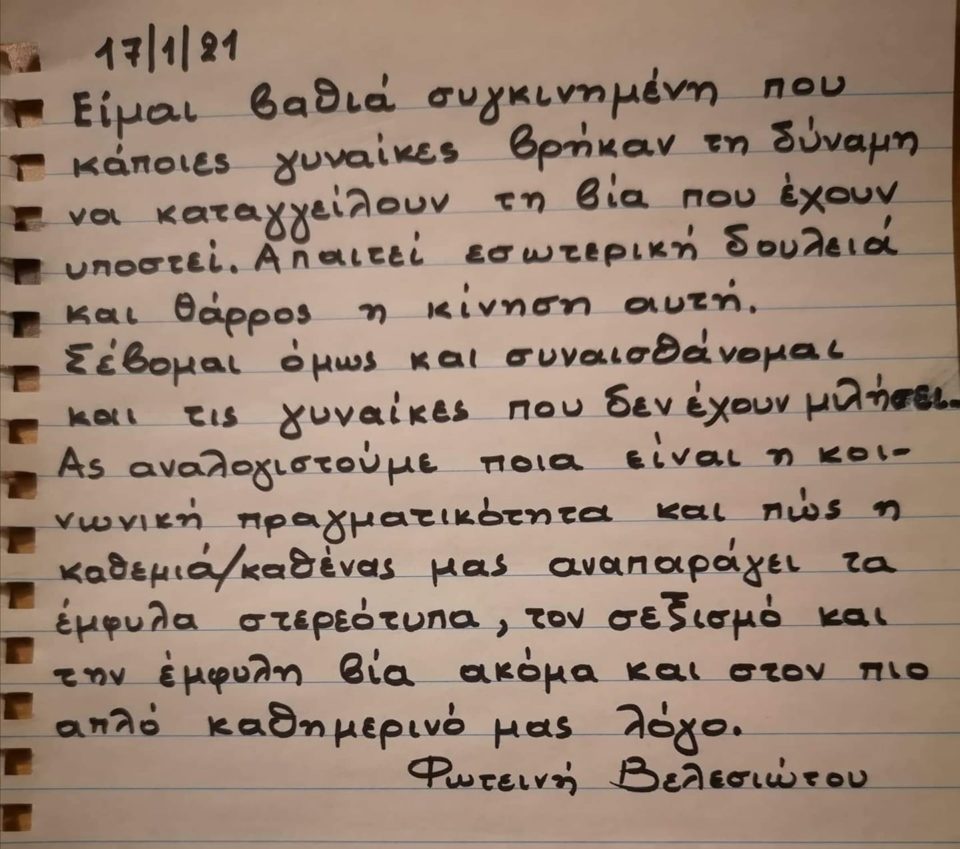 17/1/21
Είμαι βαθιά συγκινημένη που
κάποιες γυναίκες βρήκαν τη δύναμη
να καταγγείλουν τη βία που έχουν
υποστεί. Απαιτεί εσωτερική δουλειά
και θάρρος η κίνηση αυτή.
Σέβομαι όμως και συναισθάνομαι
και τις γυναίκες που δεν έχουν μιλήσει.
Ας αναλογιστούμε ποια είναι η κοι-
νωνική πραγματικότητα και πώς η
καθεμιά/καθένας μας αναπαράγει τα
έμφυλα στερεότυπα, τον σεξισμό και
την έμφυλη βία ακόμα και στον πιο
απλό καθημερινό μας λόγο.
Φωτεινή Βελεσιώτου